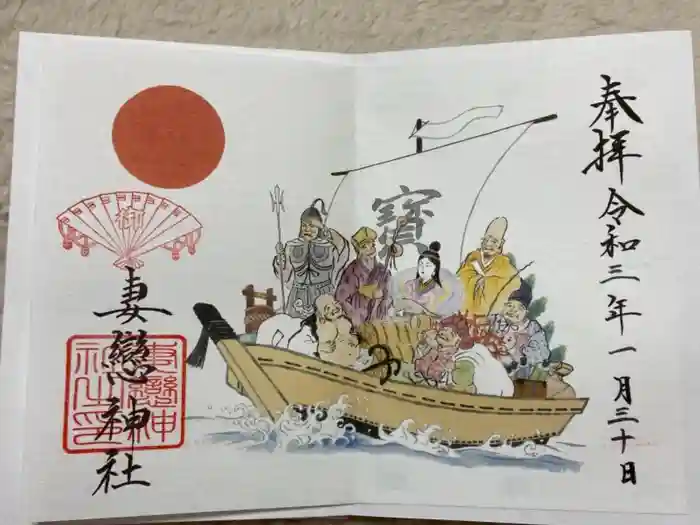 奉拝
令和三年一月三十日
寶
御
妻戀神社
妻戀神社之印